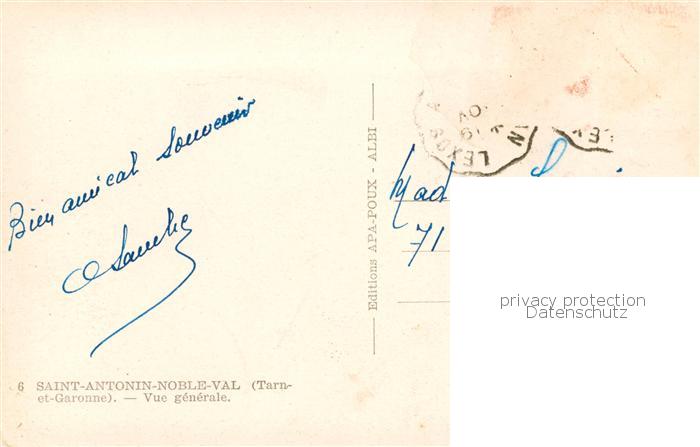 Bien amical souvenir
6 SAINT-ANTONIN-NOBLE-VAL (Tarn-
et-Garonne). — Vue générale.
— Editions APA-POUX - ALBI —
LEXOS
Mad
71
privacy protection
Datenschutz